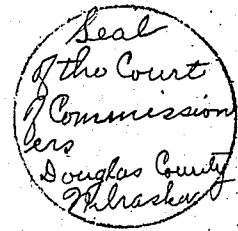 Seal
of the Court
of Commission
ers
Douglas County
Nebraska